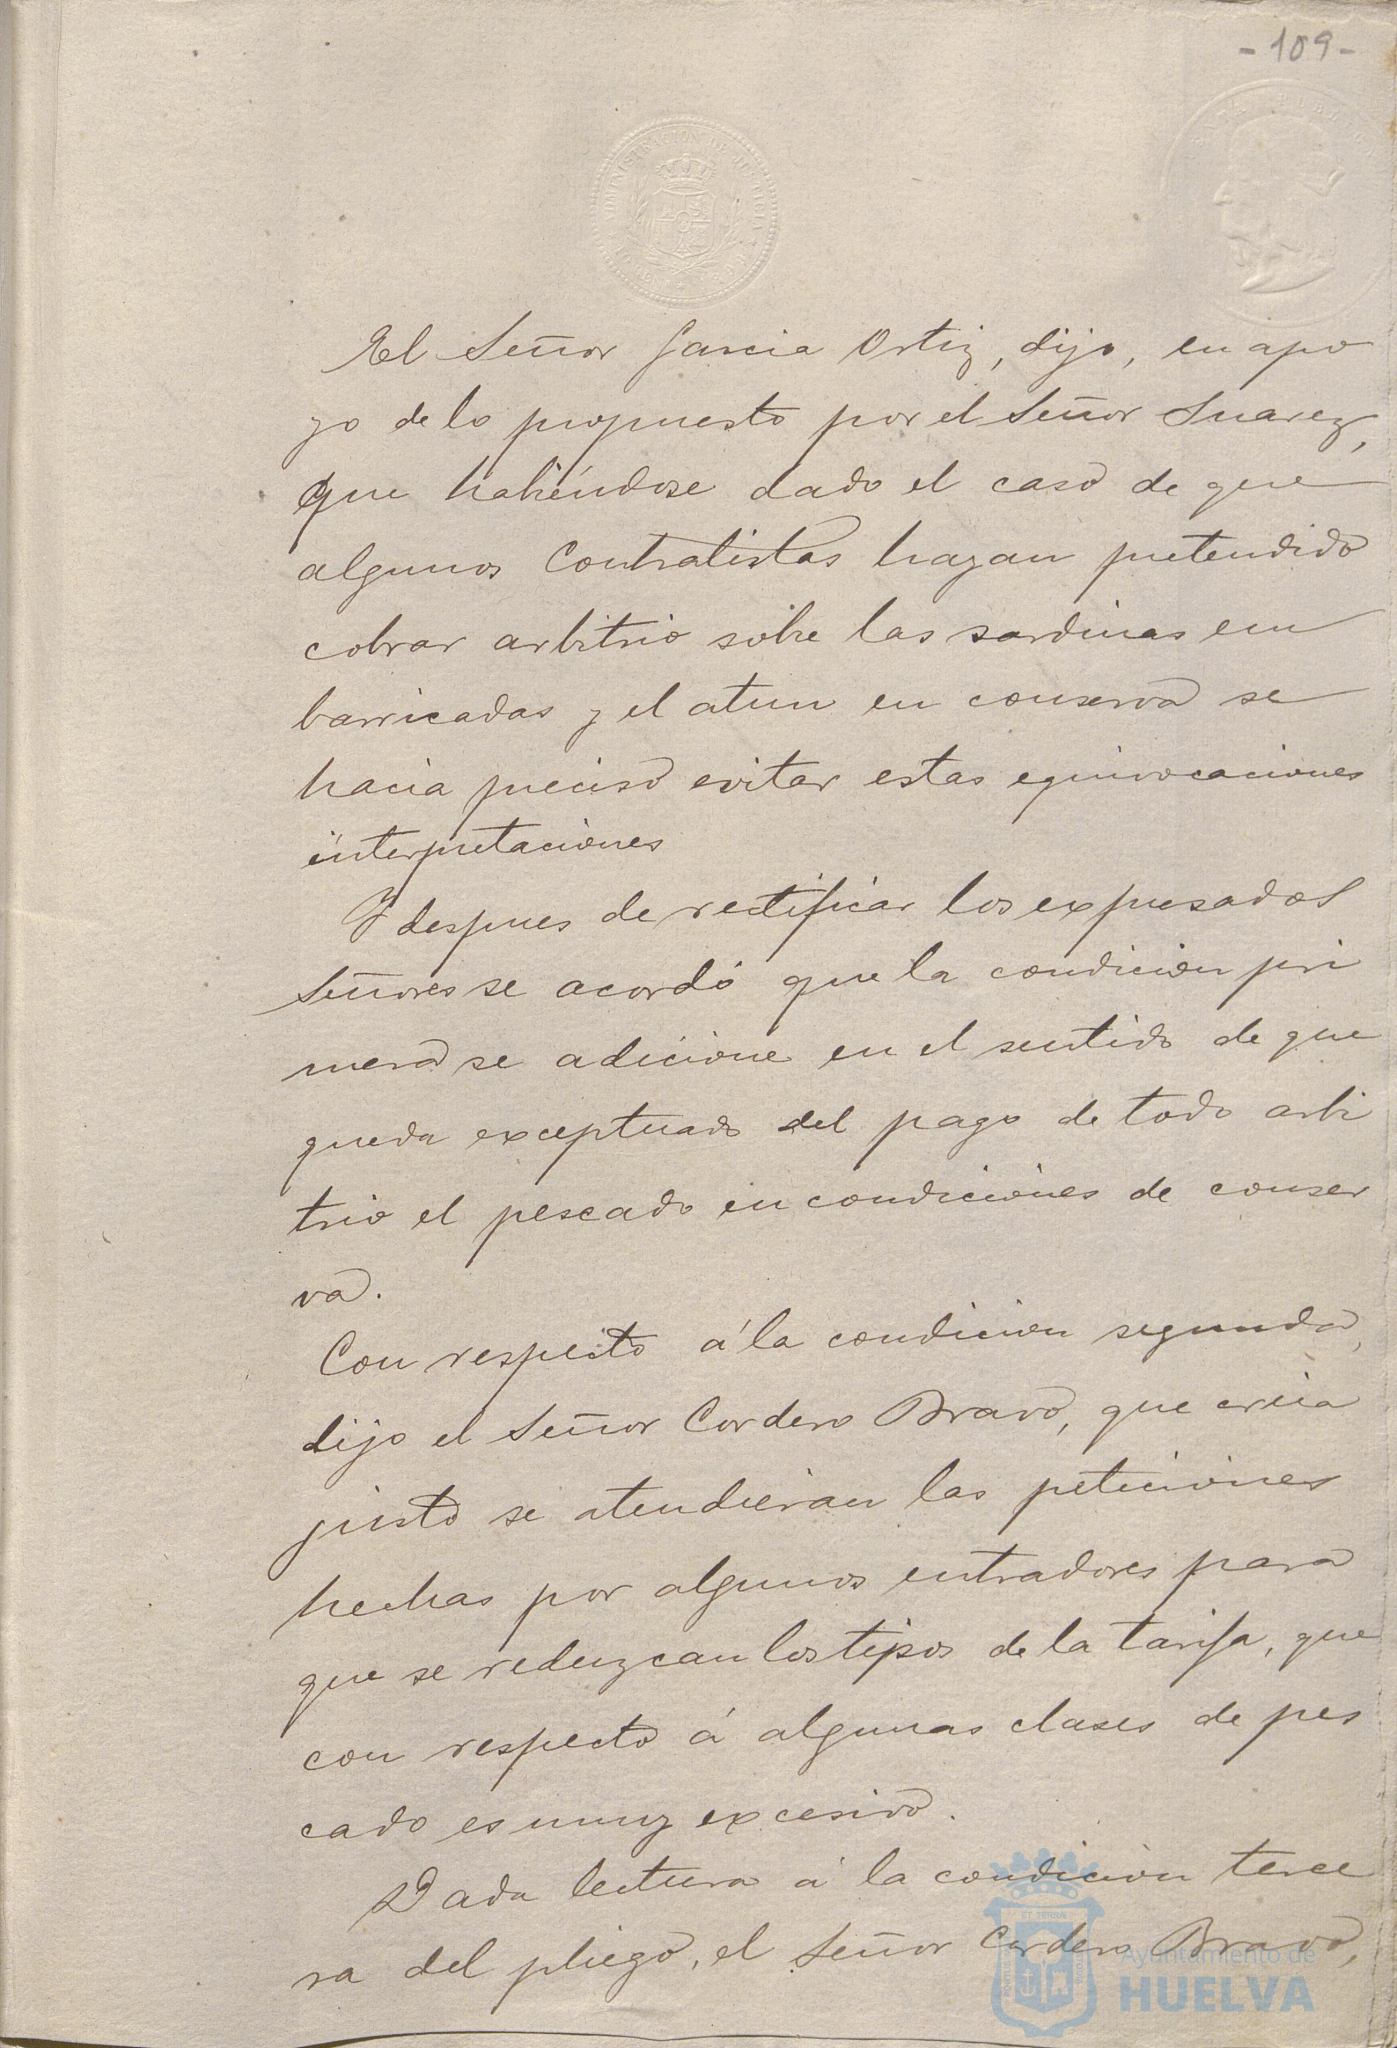 - 109 -
El Señor Garcia Ortiz, dijo, en apo
yo de lo propuesto por el Señor Suarez,
que habiéndose dado el caso de que
algunos Contratistas hayan pretendido
cobrar arbitrio sobre las sardinas em
barricadas y el atun en conserva se
hacia preciso evitar estas equivocaciones
interpretaciones
Y despues de rectificar los expresados
Señores se acordó que la condicion pri
mera se adicione en el sentido de que
queda exceptuado del pago de todo arbi
trio el pescado en condiciones de conser
va.
Con respecto á la condicion segunda,
dijo el Señor Cordero Bravo, que creia
justo se atendieran las peticiones
hechas por algunos entradores para
que se reduzcan los tipos de la tarifa, que
con respecto á algunas clases de pes
cado es muy excesivo.
Dada lectura á la condicion terce
ra del pliego, el Señor Cordero Bravo,
Ayuntamiento de
HUELVA